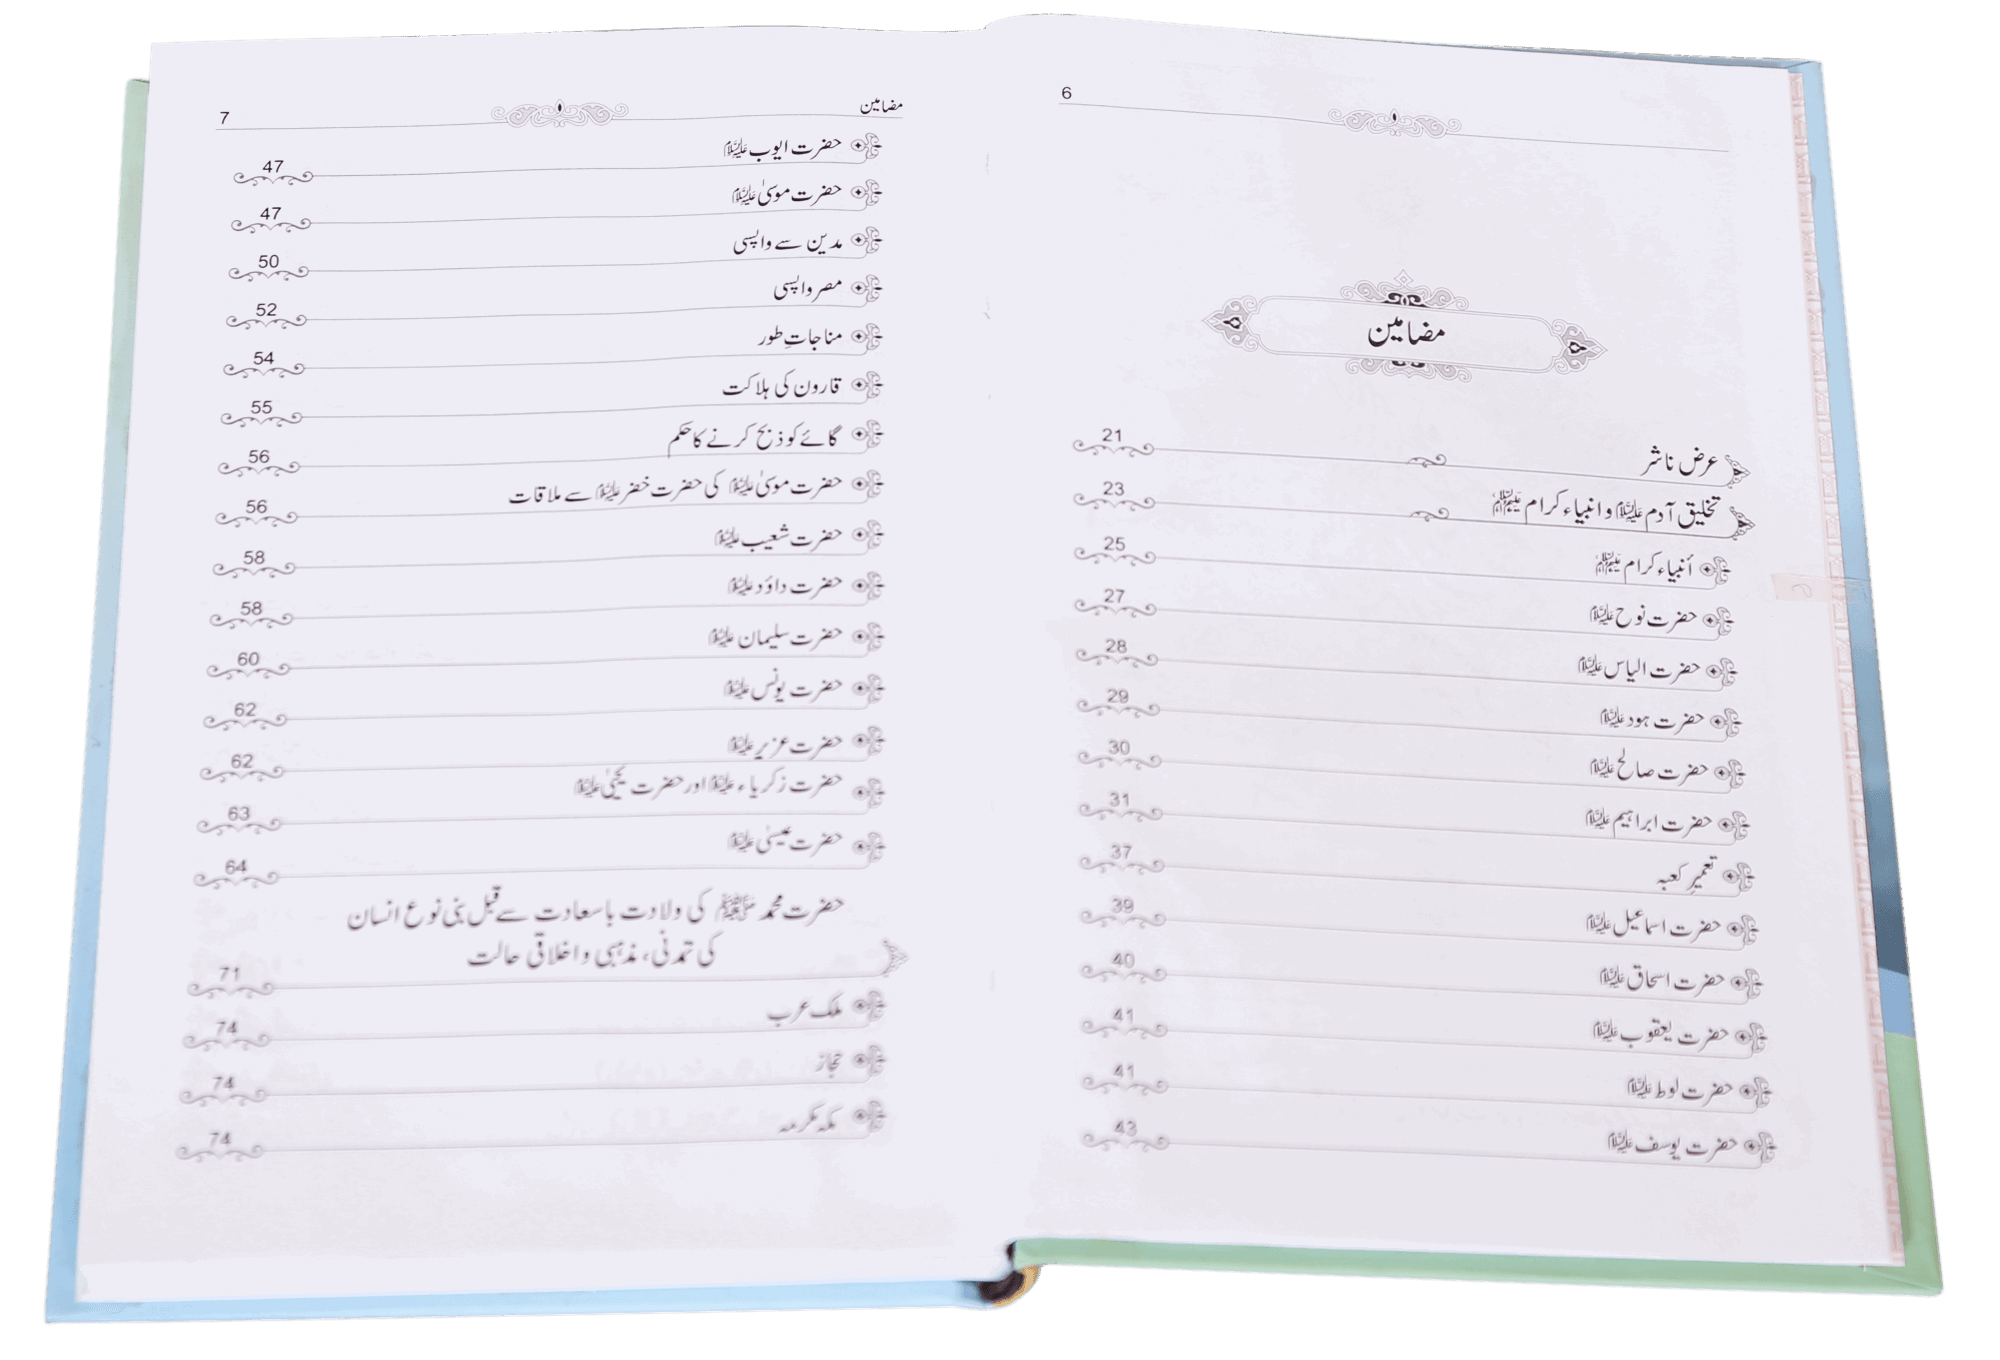 6
مضامین
عرض ناشر 21
تخلیق آدم علیہ السلام و انبیاء کرام علیہم السلام 23
أنبیاء کرام علیہم السلام 25
حضرت نوح علیہ السلام 27
حضرت الیاس علیہ السلام 28
حضرت ہود علیہ السلام 29
حضرت صالح علیہ السلام 30
حضرت ابراہیم علیہ السلام 31
تعمیرِ کعبہ 37
حضرت اسماعیل علیہ السلام 39
حضرت اسحاق علیہ السلام 40
حضرت یعقوب علیہ السلام 41
حضرت لوط علیہ السلام 41
حضرت یوسف علیہ السلام 43
مضامین 7
حضرت ایوب علیہ السلام 47
حضرت موسیٰ علیہ السلام 47
مدین سے واپسی 50
مصر واپسی 52
مناجاتِ طور 54
قارون کی ہلاکت 55
گائے کو ذبح کرنے کا حکم 56
حضرت موسیٰ علیہ السلام کی حضرت خضر علیہ السلام سے ملاقات 56
حضرت شعیب علیہ السلام 58
حضرت داؤد علیہ السلام 58
حضرت سلیمان علیہ السلام 60
حضرت یونس علیہ السلام 62
حضرت عزیر علیہ السلام 62
حضرت زکریاء علیہ السلام اور حضرت یحییٰ علیہ السلام 63
حضرت عیسیٰ علیہ السلام 64
حضرت محمد ﷺ کی ولادت باسعادت سے قبل بنی نوع انسان
کی تمدنی، مذہبی و اخلاقی حالت 71
ملک عرب 74
حجاز 74
مکہ مکرمہ 74